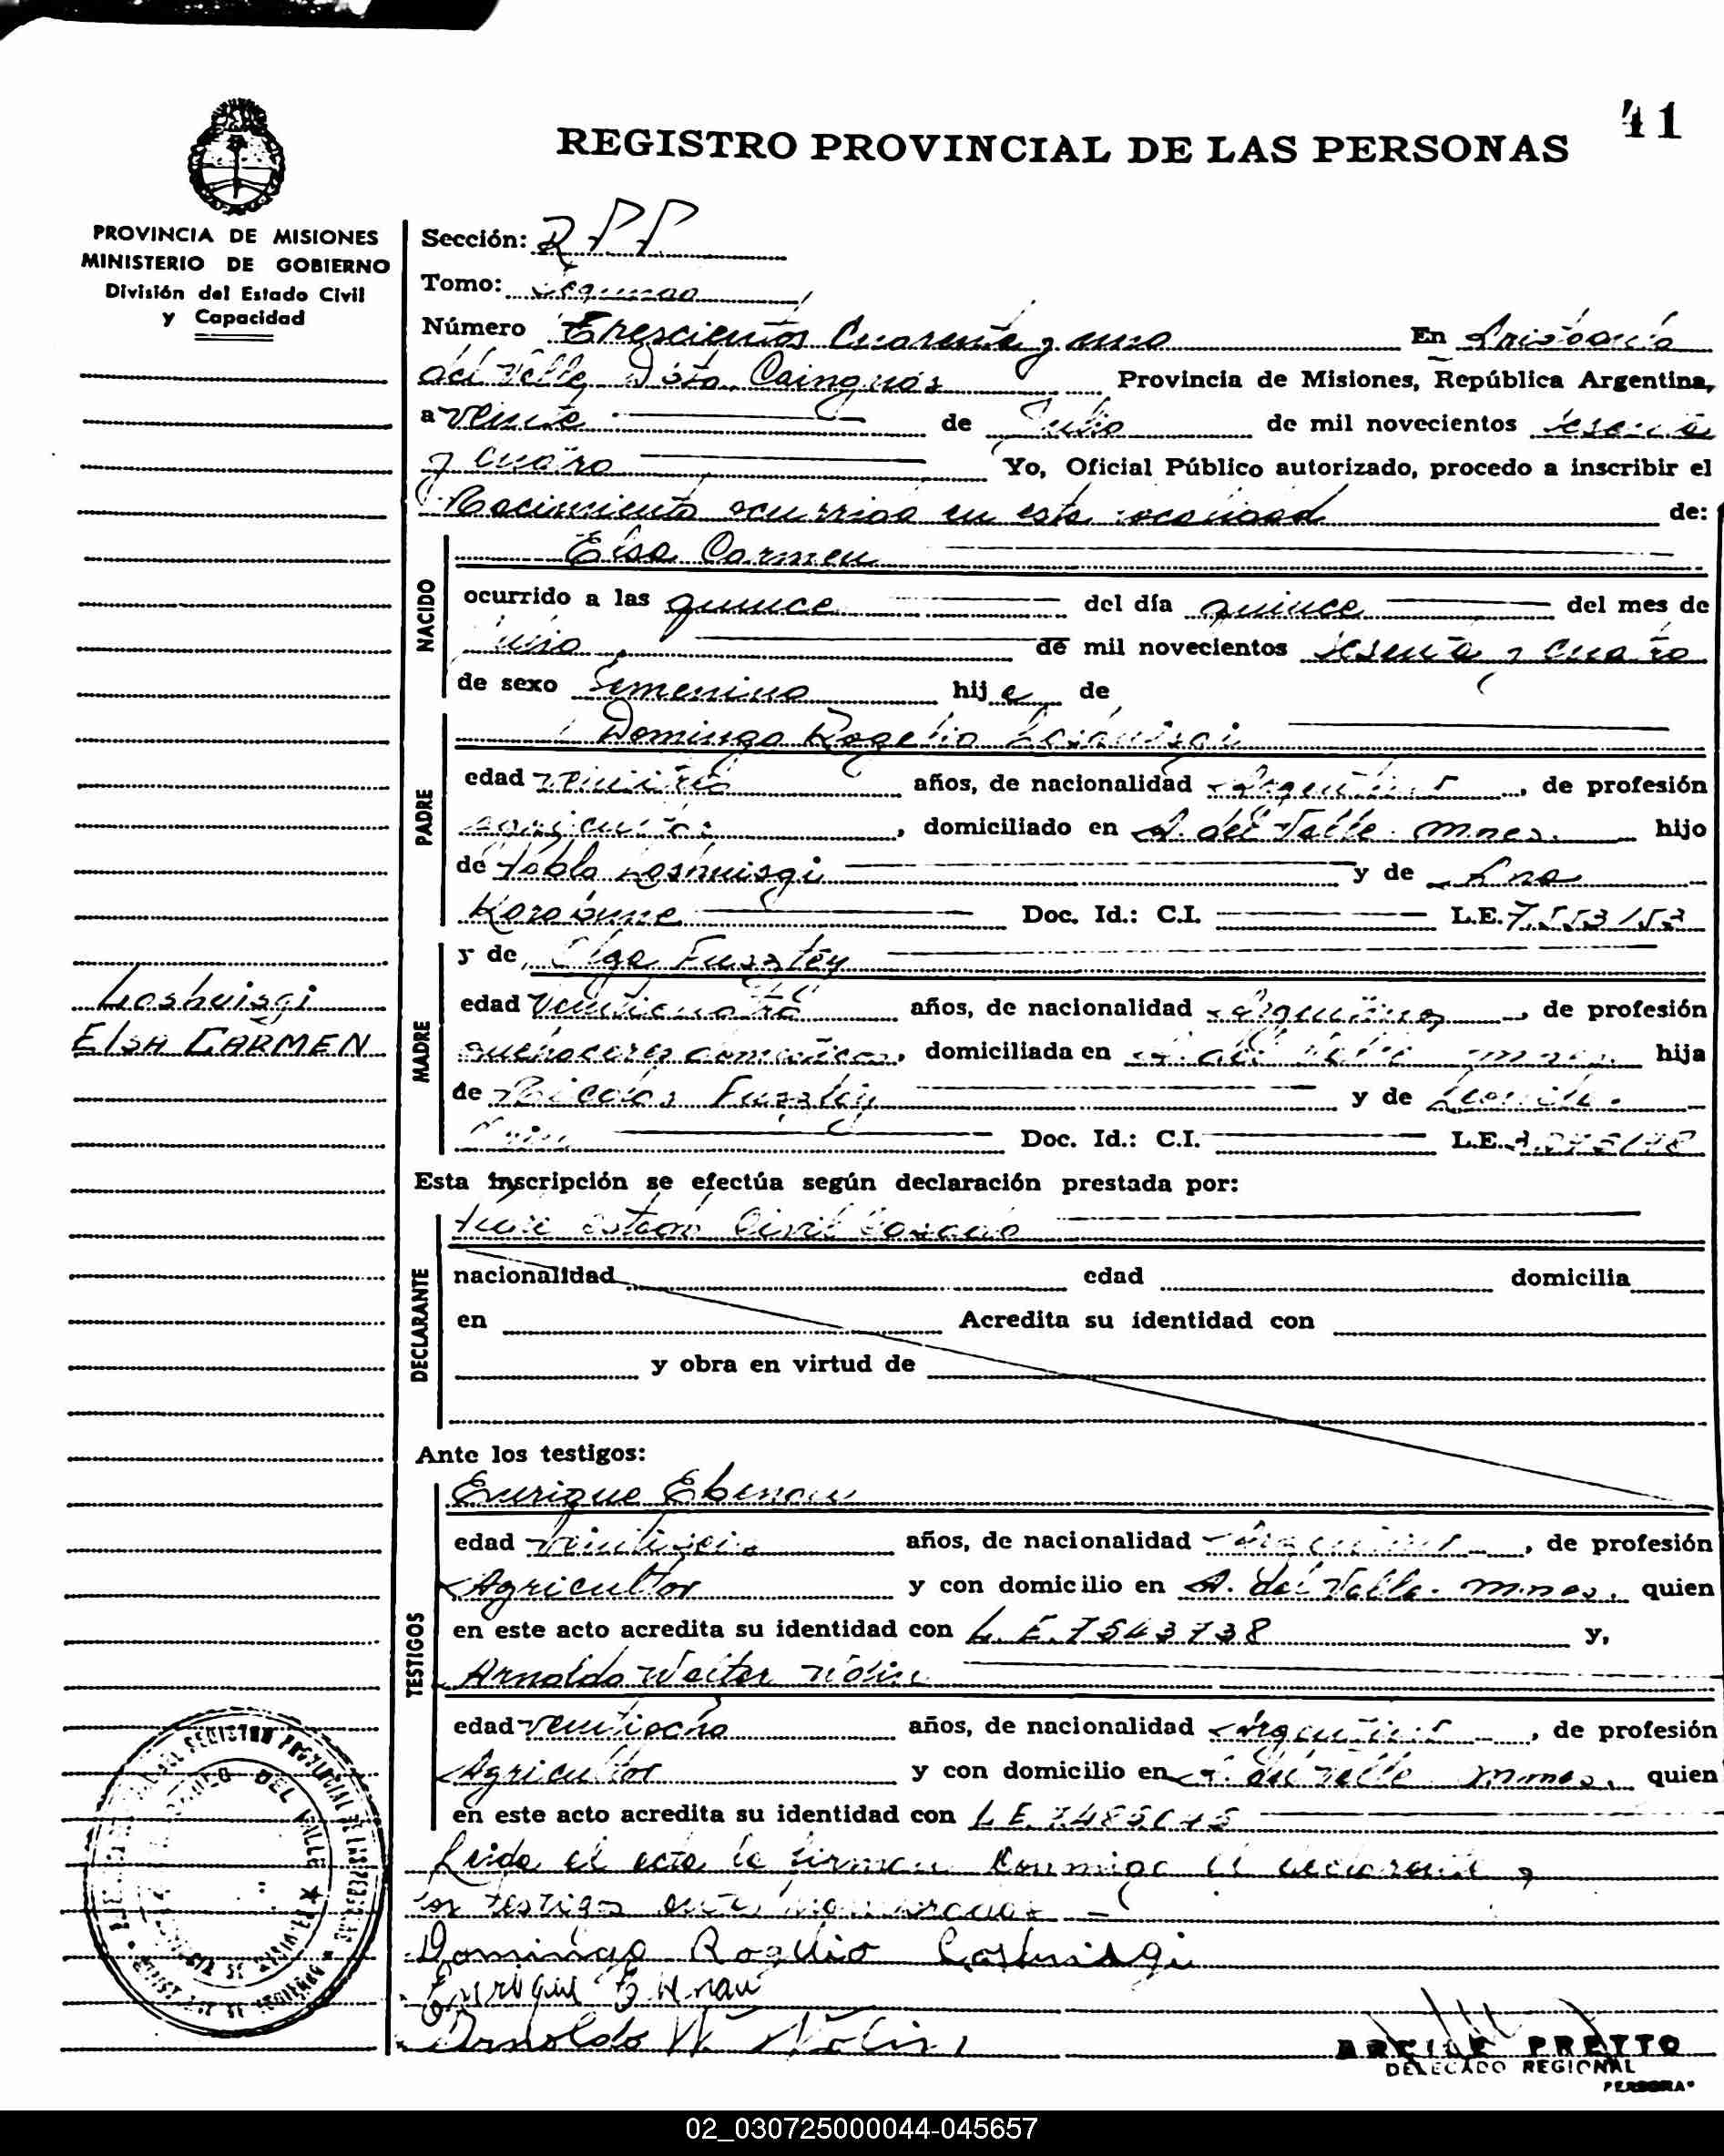 41
REGISTRO PROVINCIAL DE LAS PERSONAS
PROVINCIA DE MISIONES
MINISTERIO DE GOBIERNO
División del Estado Civil
y Capacidad
Loshuisgi
Elsa CARMEN
Sección:
Tomo: Segundo
Número Trescientos Cuarenta y uno En Aristóbulo
del Valle Dpto. Cainguás Provincia de Misiones, República Argentina,
a veinte de Julio de mil novecientos sesenta
y cuatro Yo, Oficial Público autorizado, procedo a inscribir el
Nacimiento ocurrido en esta localidad de:
NACIDO
Elsa Carmen
ocurrido a las quince del día quince del mes de
de mil novecientos sesenta y cuatro
de sexo Femenino hija de
PADRE
Domingo Rogelio Loshuisgi
edad años, de nacionalidad Argentina, de profesión
agricultor, domiciliado en A. del Valle. Mnes. hijo
de Pablo Loshuisgi y de Ana
Doc. Id.: C.I. L.E. 7.553153
MADRE
y de Olga
edad Veinticuatro años, de nacionalidad Argentina, de profesión
quehaceres domésticos, domiciliada en A. del Valle Mnes. hija
de Nicolás y de
Doc. Id.: C.I. L.E.
Esta inscripción se efectúa según declaración prestada por:
DECLARANTE
Estado Civil Casado
nacionalidad edad domicilia
en Acredita su identidad con
y obra en virtud de
Ante los testigos:
TESTIGOS
Enrique Ebenau
edad Veintiseis años, de nacionalidad Argentina, de profesión
Agricultor y con domicilio en A. del Valle. Mnes. quien
en este acto acredita su identidad con L.E. 7543738 y,
Arnoldo Walter
edad veintiocho años, de nacionalidad Argentina, de profesión
Agricultor y con domicilio en A. del Valle Mnes. quien
en este acto acredita su identidad con L.E.
Leida el acta la firman conmigo el declarante y
los testigos
Domingo Rogelio Loshuisgi
Enrique Ebenau
Arnoldo W.
PRETTO
DELEGADO REGIONAL
02_030725000044-045657